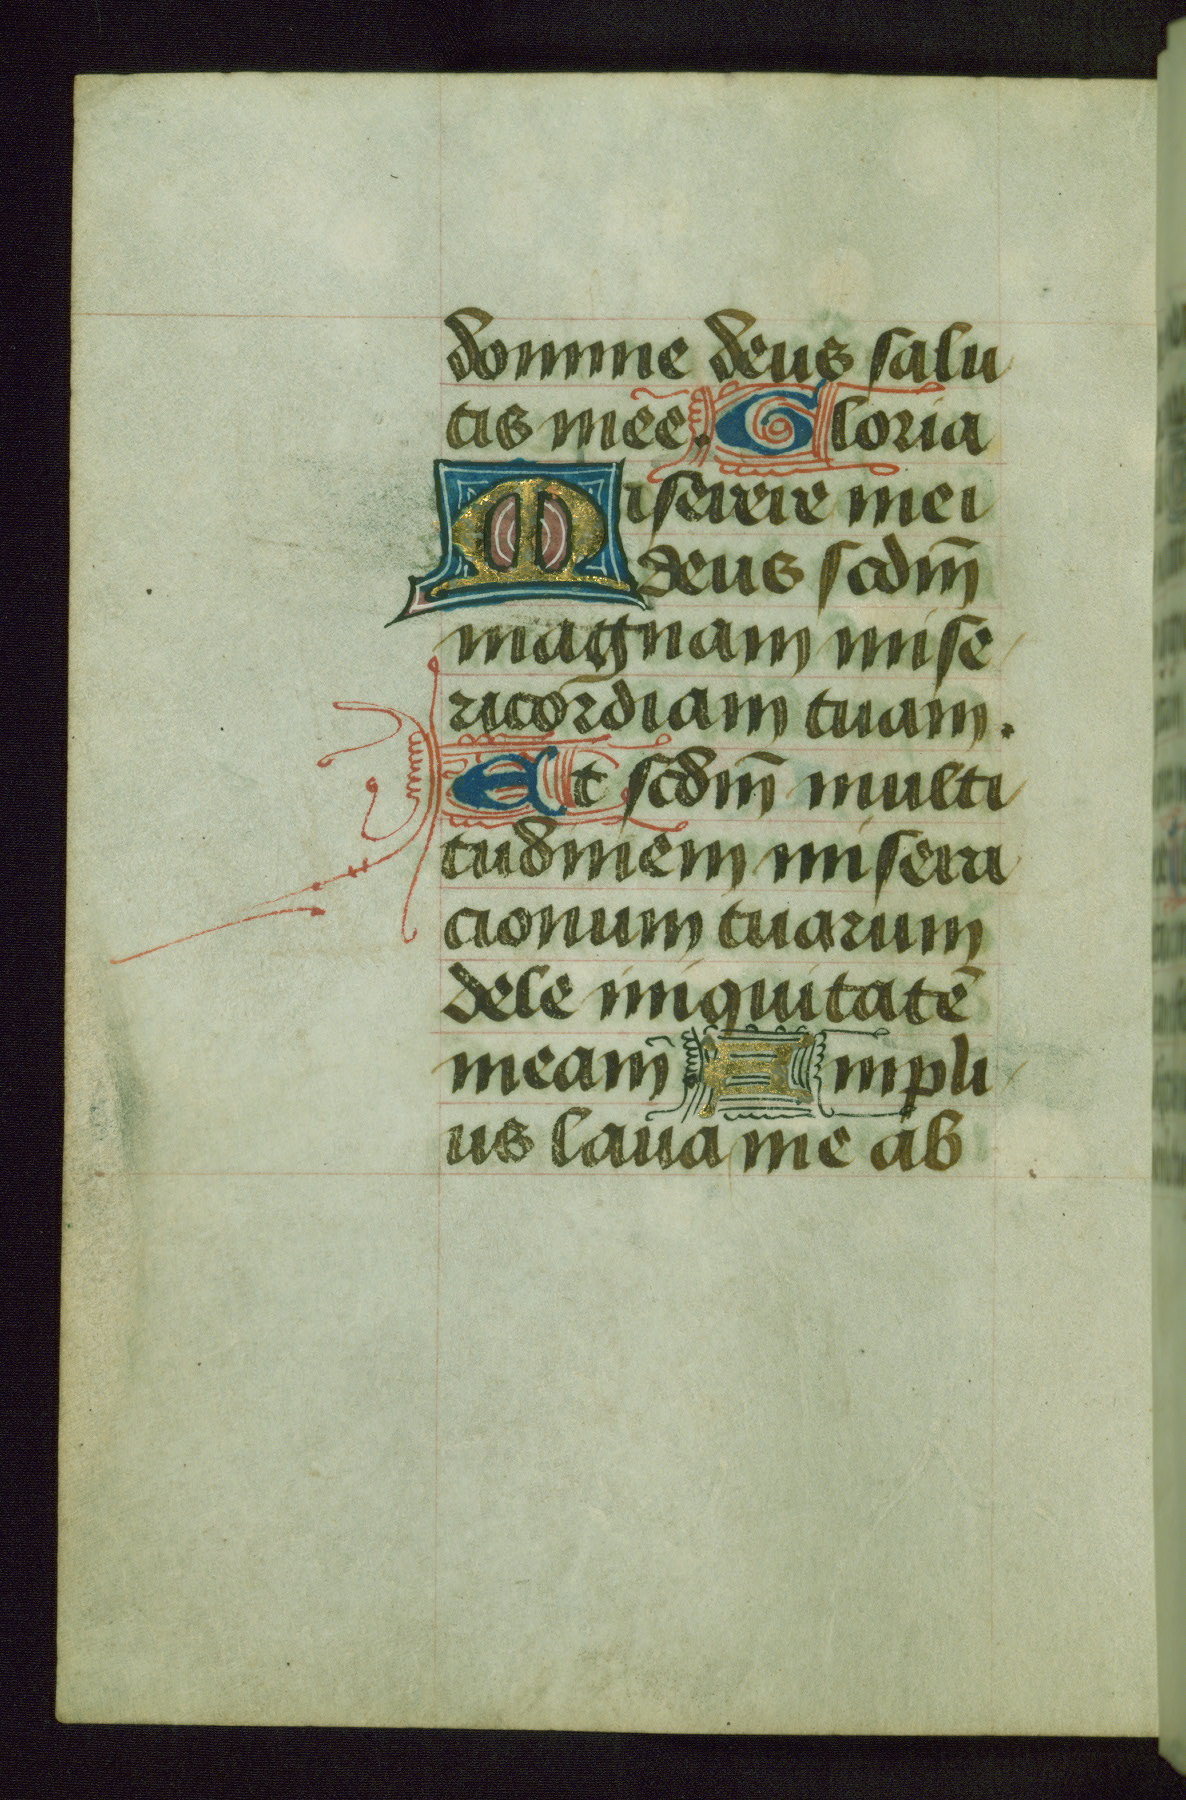 domine deus salu
tis mee. Gloria
Miserere mei
deus scdm̄
magnam mise
ricordiam tuam.
Et scdm̄ multi
tudinem misera
cionum tuarum
dele iniquitatē
meam̄ Ampli
us laua me ab